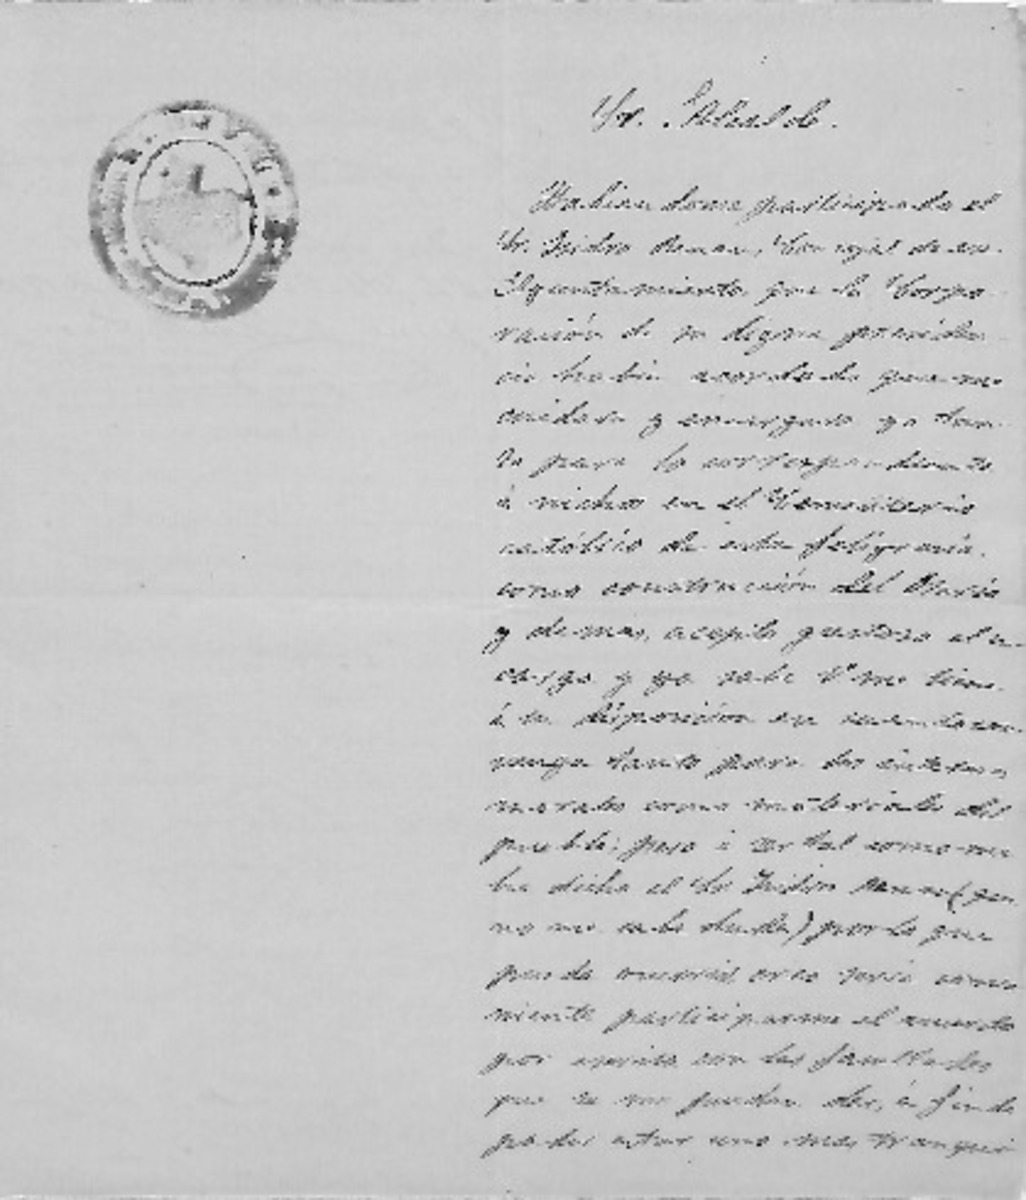 Sr. Alcalde.
Habiendome participado el
Sr. Isidro Aman, Concejal de ese
Ayuntamiento que la Corpo-
ración de su digna presiden-
cia habia acordado que me
cuidara y encargara yo tan-
to para lo correspondiente
á nichos en el Cementerio
católico de esta feligresía,
como construcción del Osario
y demas, acepto gustoso el en-
cargo y ya sabe V. me tiene
á su disposición en cuanto con-
venga tanto para los intereses
morales como materiales del
pueblo; pero á ser tal como me
ha dicho el Sr Isidro (que
no me cabe duda) por lo que
pueda ocurrir, creo sería conve-
niente participarme el acuerdo
por escrito con las facultades
que se me puedan dar, á fin de
poder estar uno mas tranqui